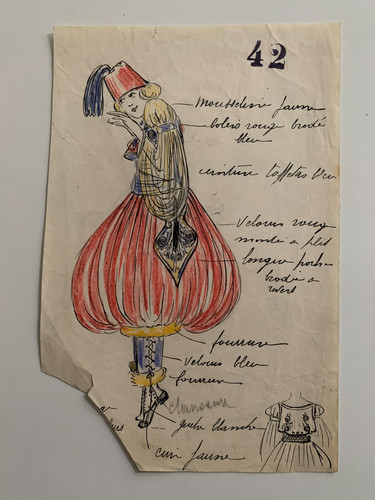 42
mousseline jaune
boléro rouge brodé
bleu
ceinture taffetas bleu
velours rouge
monté a plit
longue poche
brodée a
fourrure
velours bleu
fourrure
chaussure
guêtre blanche
cuir jaune